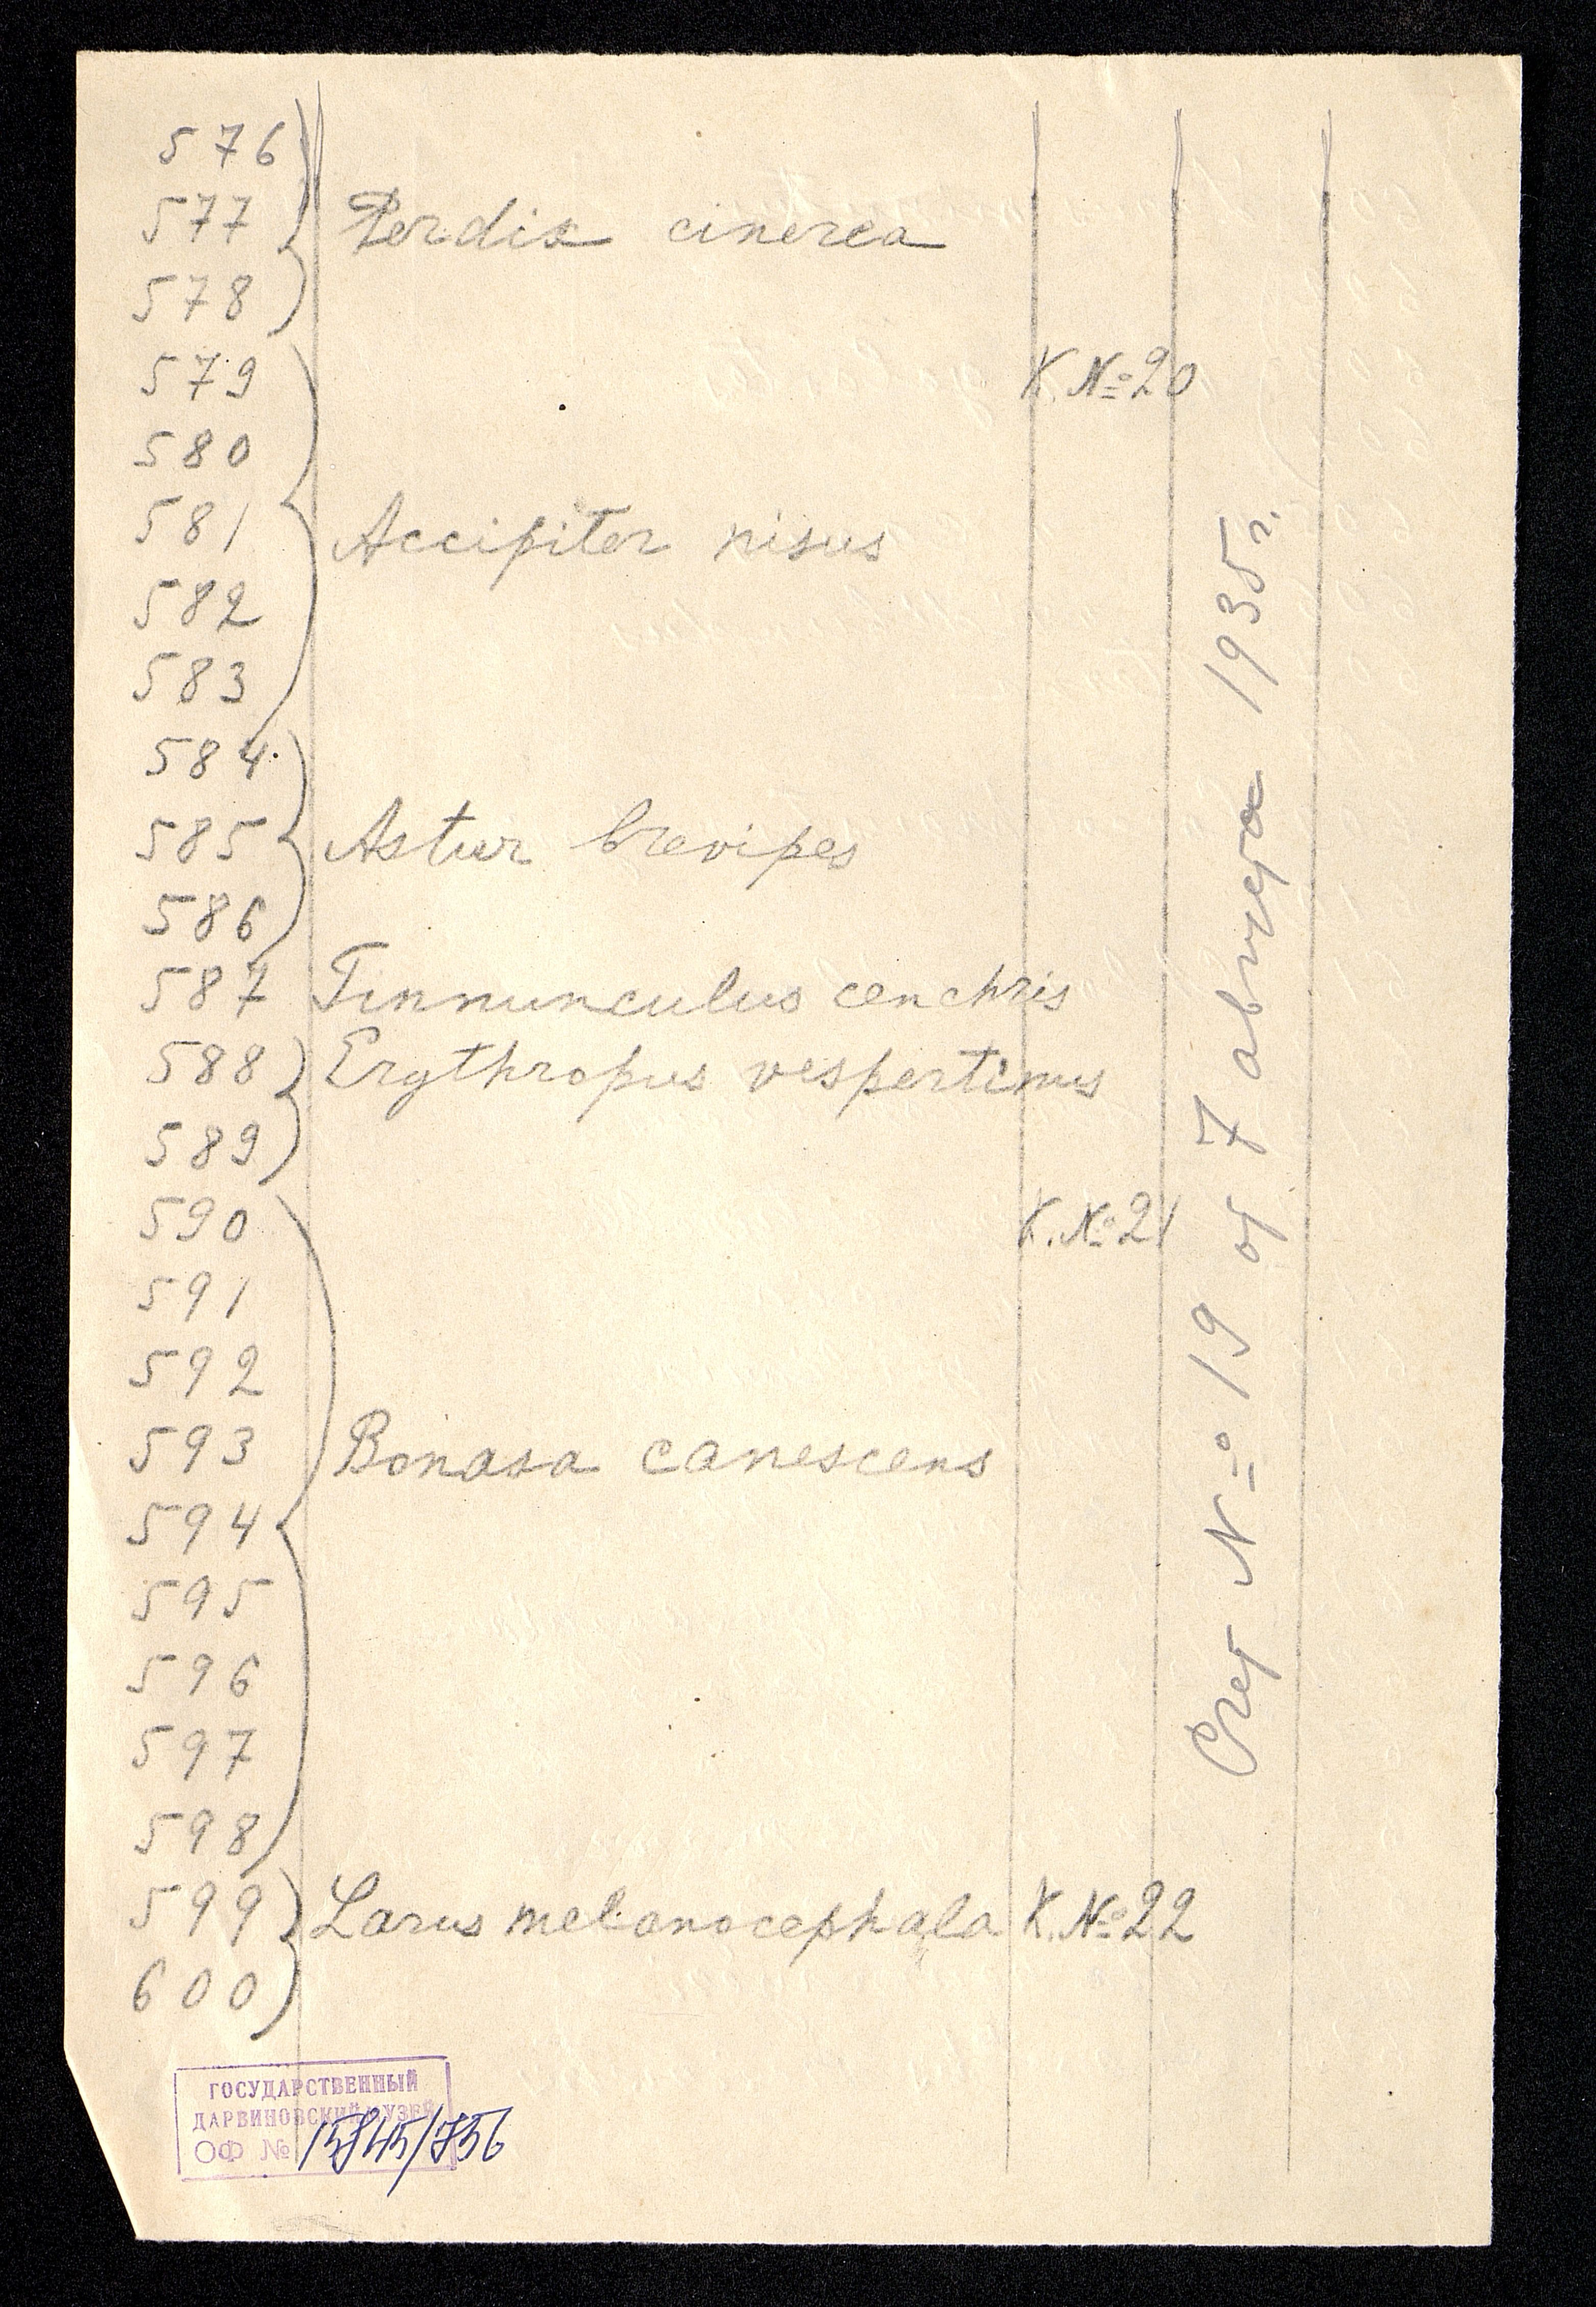 576
577 Perdix cinerea
578
579 К. № 20
580
581 Accipiter nisus
582
583
584
585 Astur brevipes
586
587 Tinnunculus cenchris
588 Erythropus vespertinus
589
590 К. № 21
591
592
593 Bonasa canescens
594
595
596
597
598
599 Larus melanocephala К. № 22
600
Счет № 19 от 7 августа 1935 г.
ГОСУДАРСТВЕННЫЙ
ДАРВИНОВСКИЙ МУЗЕЙ
ОФ №